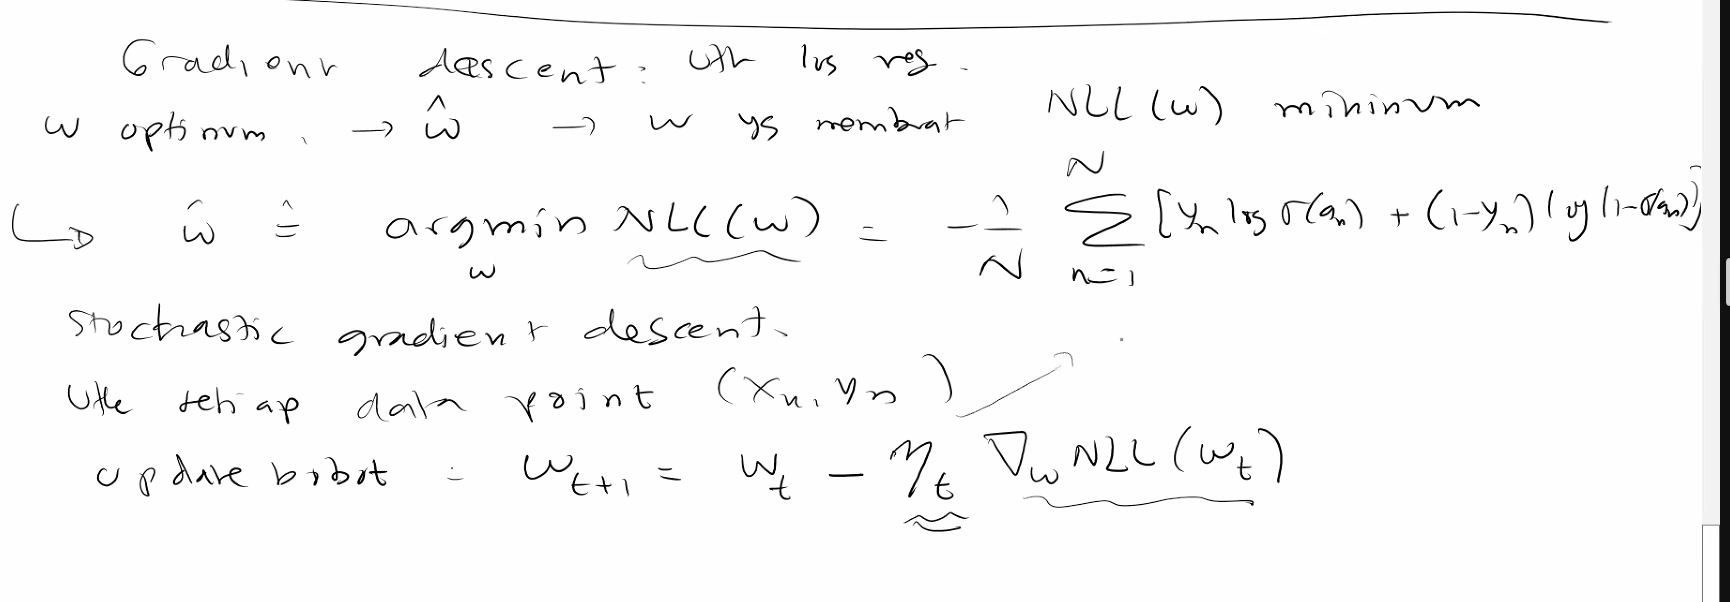 Gradient descent : utk log reg.
w optimum. → ŵ → w yg membuat NLL(w) minimum
↳ ŵ ≙ argmin_w NLL(w) = -1/N Σ_{n=1}^{N} [y_n log σ(a_n) + (1-y_n) log(1-σ(a_n))]
stochastic gradient descent.
Utk setiap data point (x_n, y_n) ↗
update bobot : w_{t+1} = w_t - η_t ∇_w NLL(w_t)